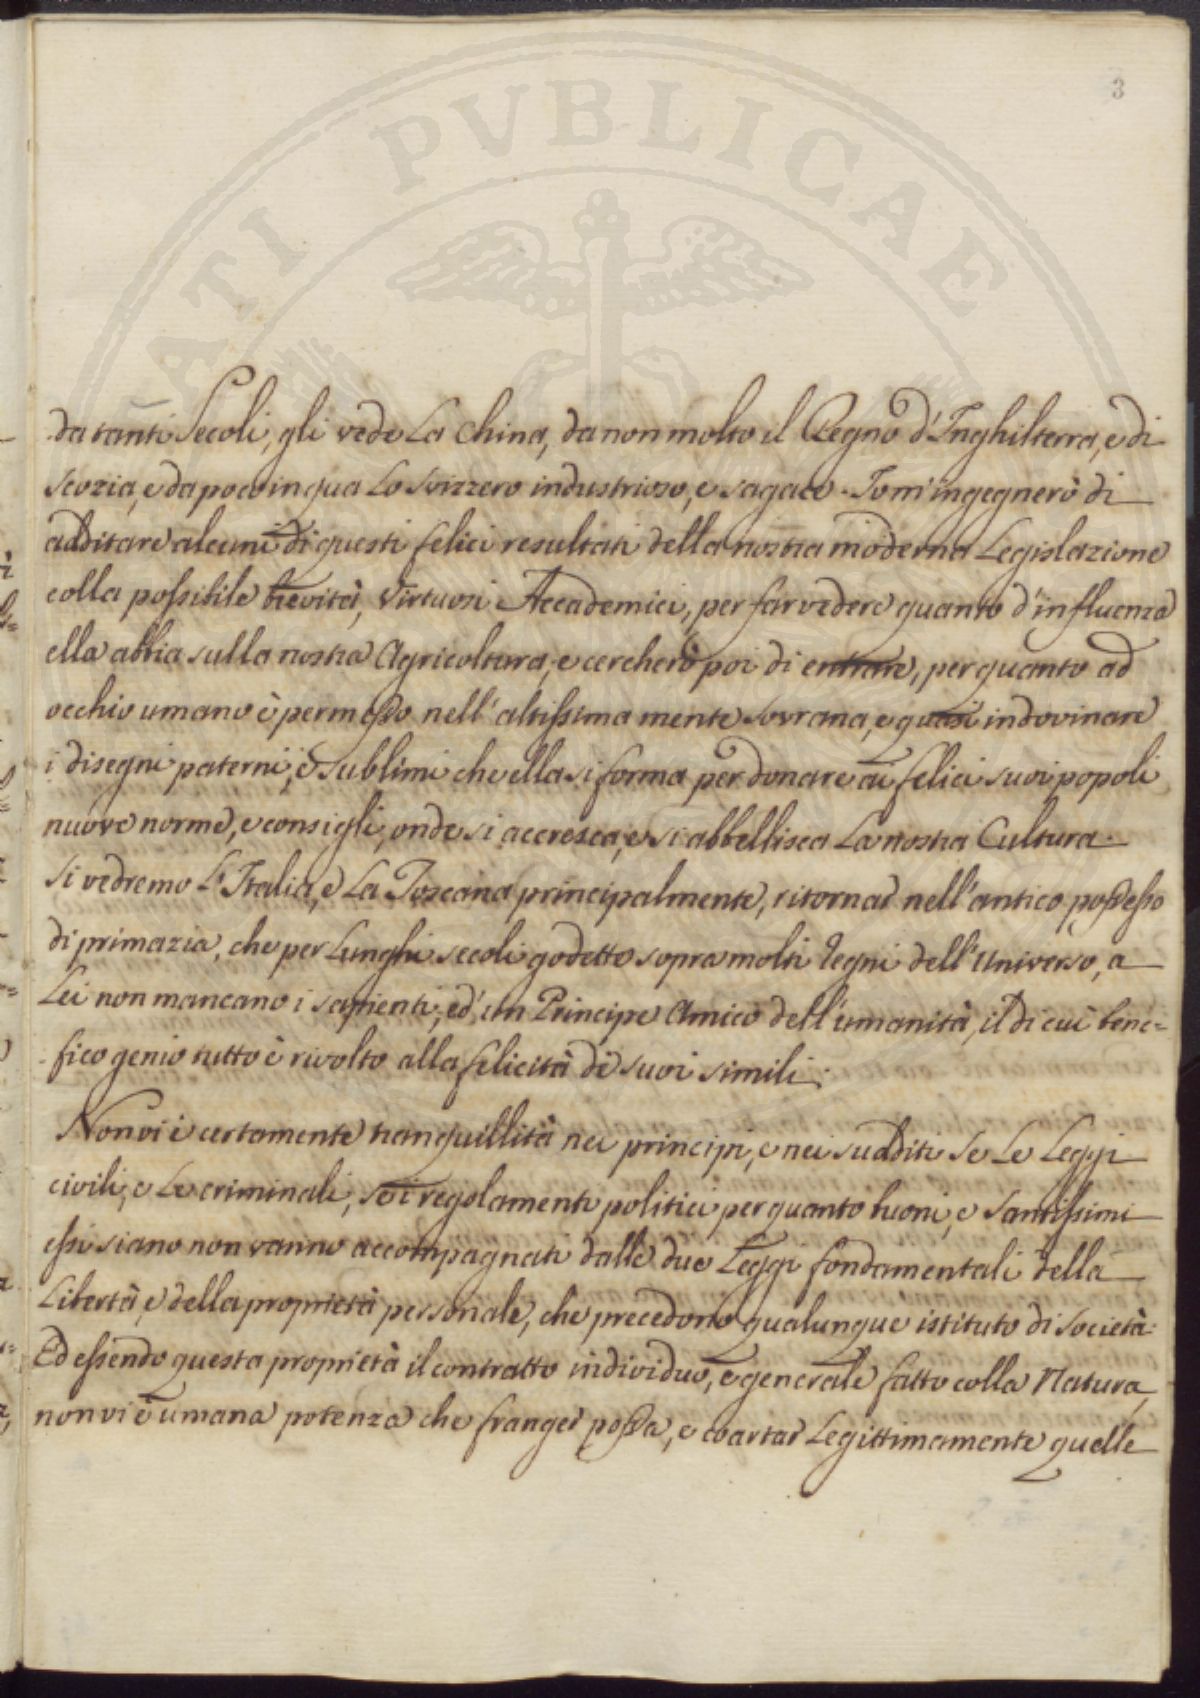 ATI PVBLICAE
3
da tanti Secoli, gli vede La China, da non molto il Regno d'Inghilterra, e di
Scozia, e da poco in qua Lo Svizzero industrioso, e sagace. Io m'ingegnerò di
additare alcuni di questi felici resultati della nostra moderna Legislazione
colla possibile brevità, Virtuosi Accademici, per far vedere quanto d'influenza
ella abbia sulla nostra Agricoltura, e cercherò poi di entrare, per quanto ad
occhio umano è permesso nell'altissima mente Sovrana, e quasi indovinare
i disegni paterni, e Sublimi che ella si forma per donare ai felici suoi popoli
nuove norme, e consigli, onde si accresca, e si abbellisca La nostra Cultura.
Si vedremo L'Italia, e La Toscana principalmente, ritornar nell'antico possesso
di primazia, che per Lunghi secoli godette sopra molti Regni dell'Universo, a
Lei non mancano i sapienti, ed un Principe Amico dell'umanità, il di cui bene=
fico genio tutto è rivolto alla felicità de suoi simili.
Non vi è certamente tranquillità nei principi, e nei sudditi Se Le Leggi
civili, e Le criminali, se i regolamenti politici per quanto buoni, e Santissimi
essi siano non vanno accompagnati dalle due Leggi fondamentali della
Libertà, e della proprietà personale, che precedono qualunque istituto di Società.
Ed essendo questa proprietà il contratto individuo, e generale fatto colla Natura,
non vi è umana potenza che franger possa, e coartar Legittimamente quelle